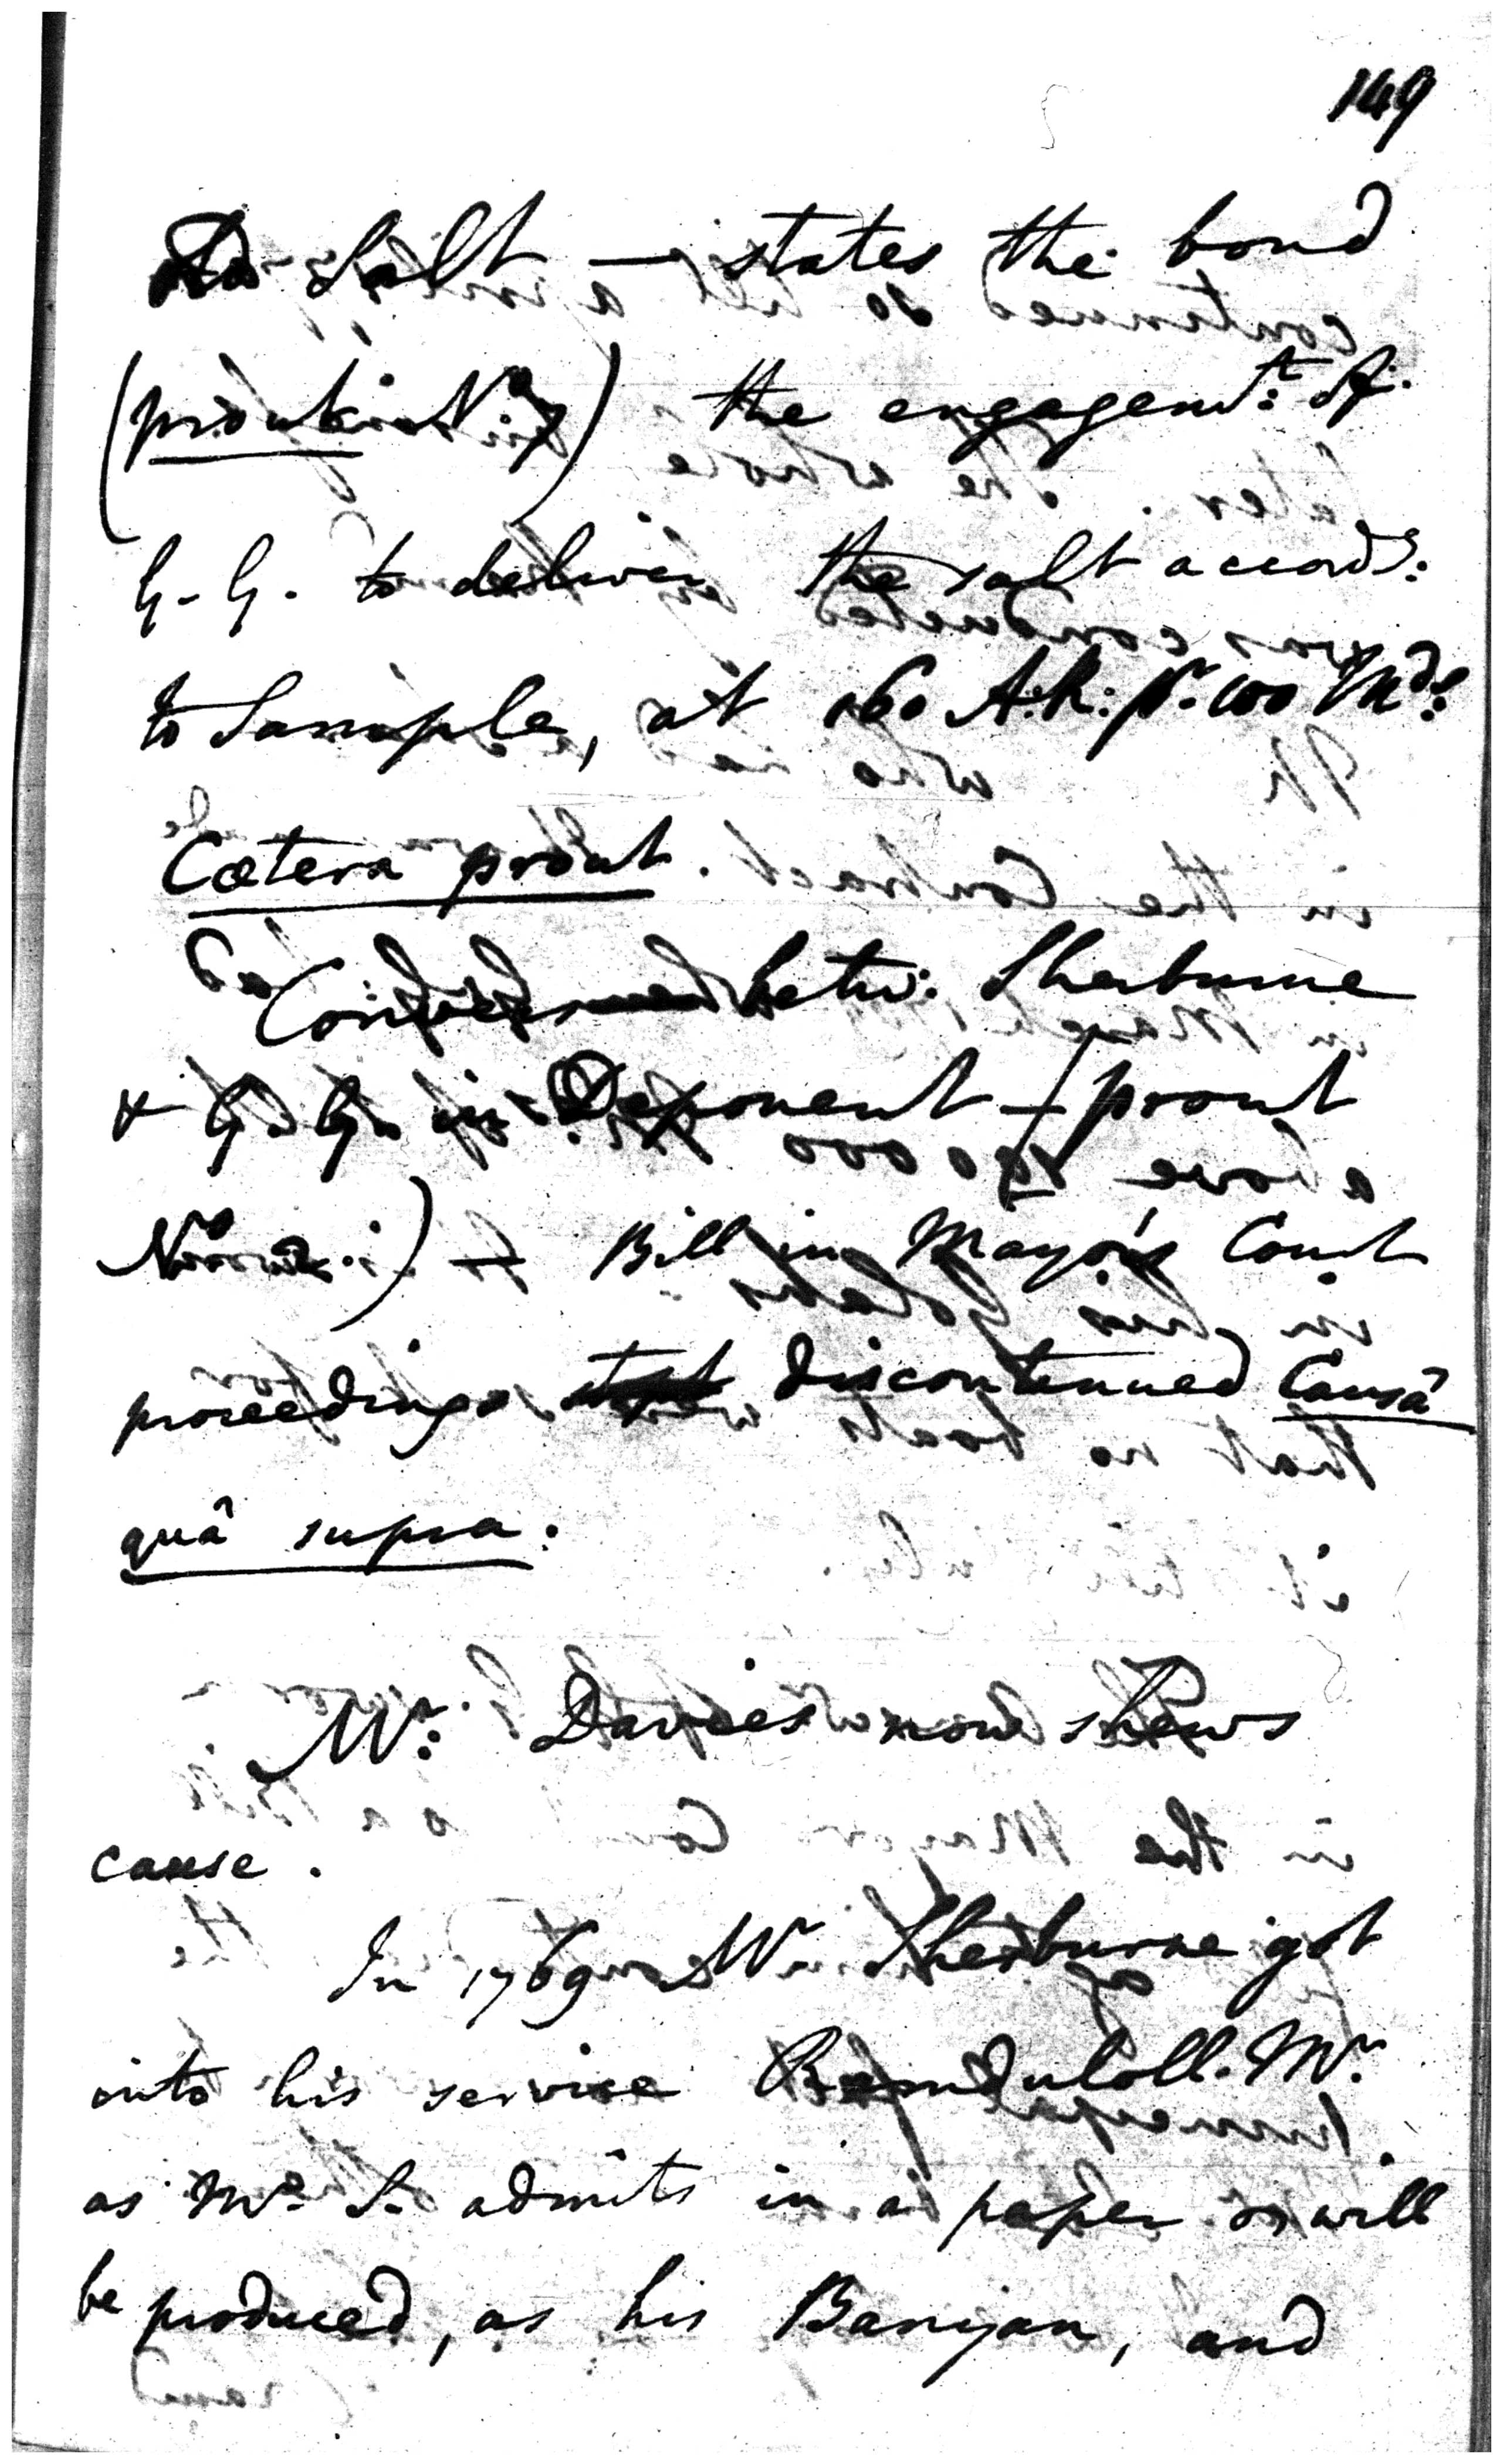 149
Salt — states the bond
(prout in No. 7) the engagemt: of
G. G. to deliver the salt accordg:
to Sample, at 160 A.R: pr. 100 Mds:
Cœtera prout.
Conference betw: Sherburne
& G. G. Deponent — (prout
No. 2.) — Bill in Mayor's Court
proceedings discontinued Causâ
quâ supra:
Mr: Davies now shews
cause.
In 1769 Mr Sherburne got
into his service Ramduloll. Mr.
as Mr. S. admits in a paper wh will
be produced, as his Banyan, and